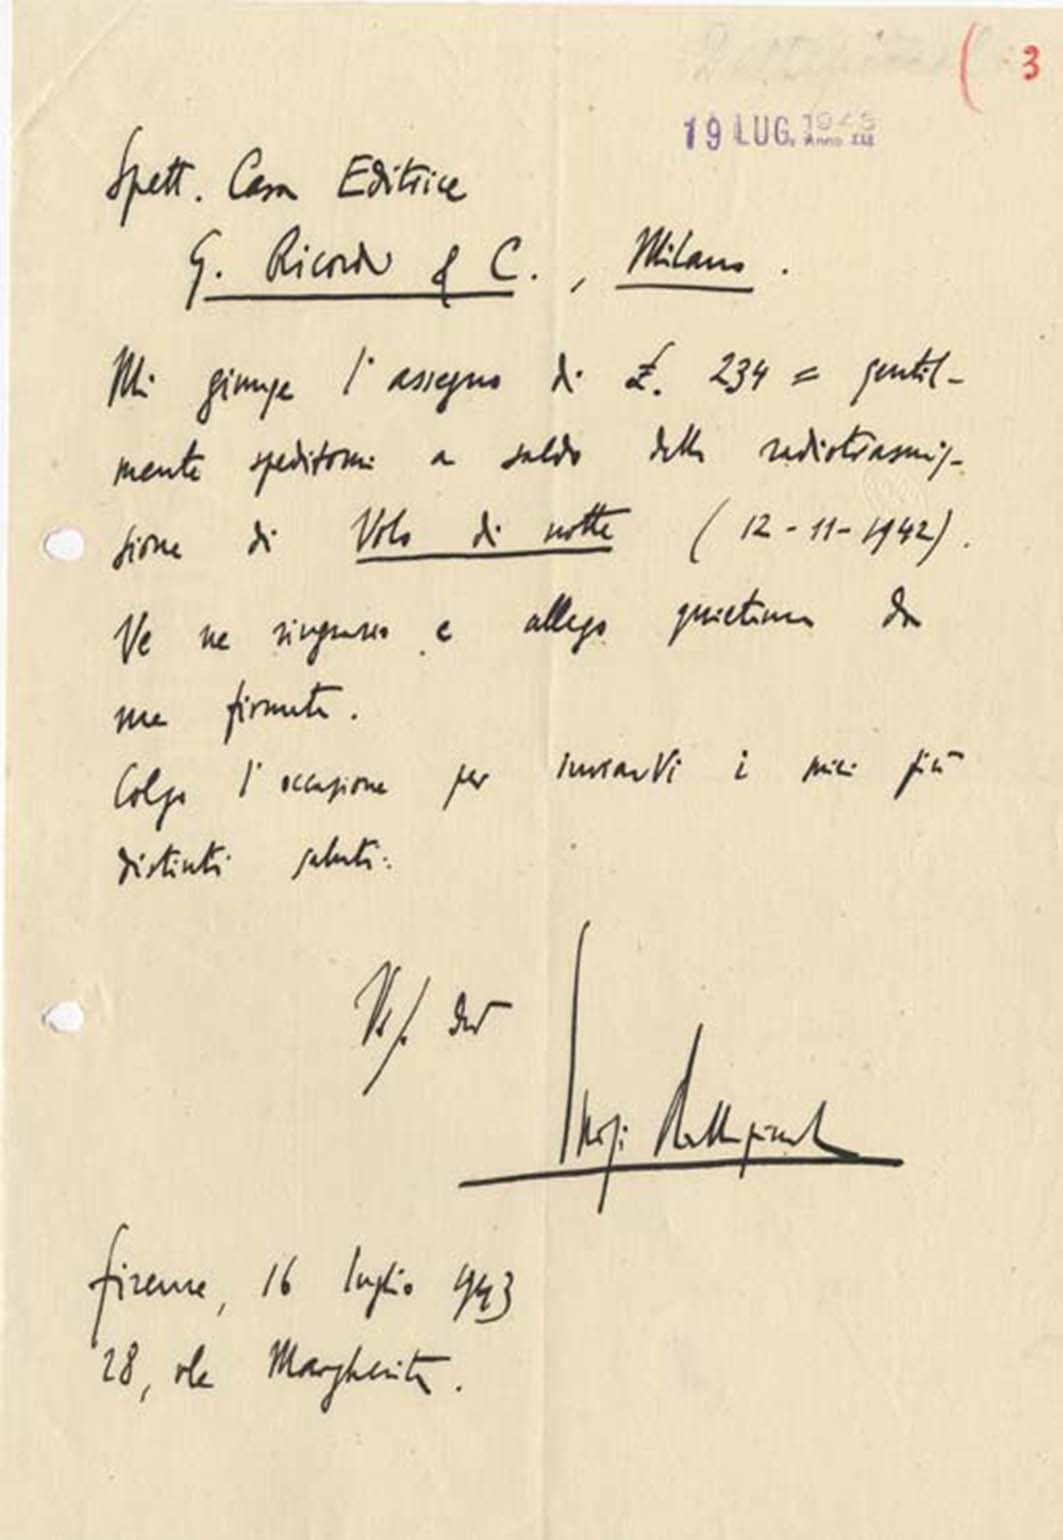 Dallapiccola ( 3
19 LUG. 1943 Anno XXI
Spett. Casa Editrice
G. Ricordi & C. , Milano .
Mi giunge l'assegno di £. 234 = gentil-
mente speditomi a saldo della radiotrasmis-
sione di Volo di notte ( 12 - 11 - 1942) .
Ve ne ringrazio e allego quietanza da
me firmata .
Colgo l'occasione per inviarVi i miei più
distinti saluti.
Vs/. dev
Luigi Dallapiccola
Firenze, 16 luglio 943
28, vle Margherita .